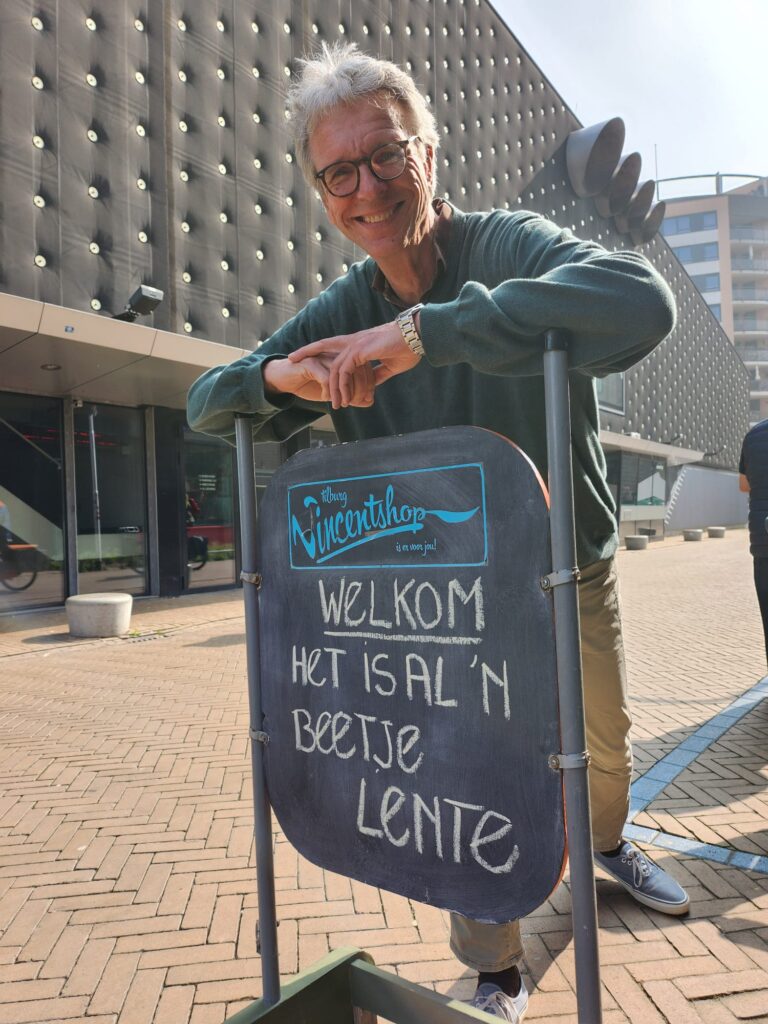 tilburg
Vincentshop
is er voor jou!
WELKOM
HET IS AL 'N
BEETJE
LENTE